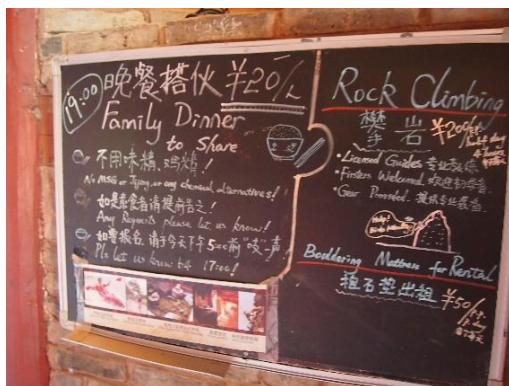 19:00 晚餐搭伙 ¥20/人
Family Dinner
to Share
不用味精、鸡精!
No MSG or Jijing, or any chemical alternatives!
如是素食者请提前告之!
Any Requests please let us know!
如需报名,请于今天下午5:00前"吱"一声!
Pls let us know b4 17:00!
Rock Climbing
攀岩 ¥200/
Licensed Guides 专业教练
Firsters Welcomed 欢迎初学者
Gear Provided. 提供专业装备.
Help!
Bouldering Mattress for Rental
抱石垫出租 ¥50/